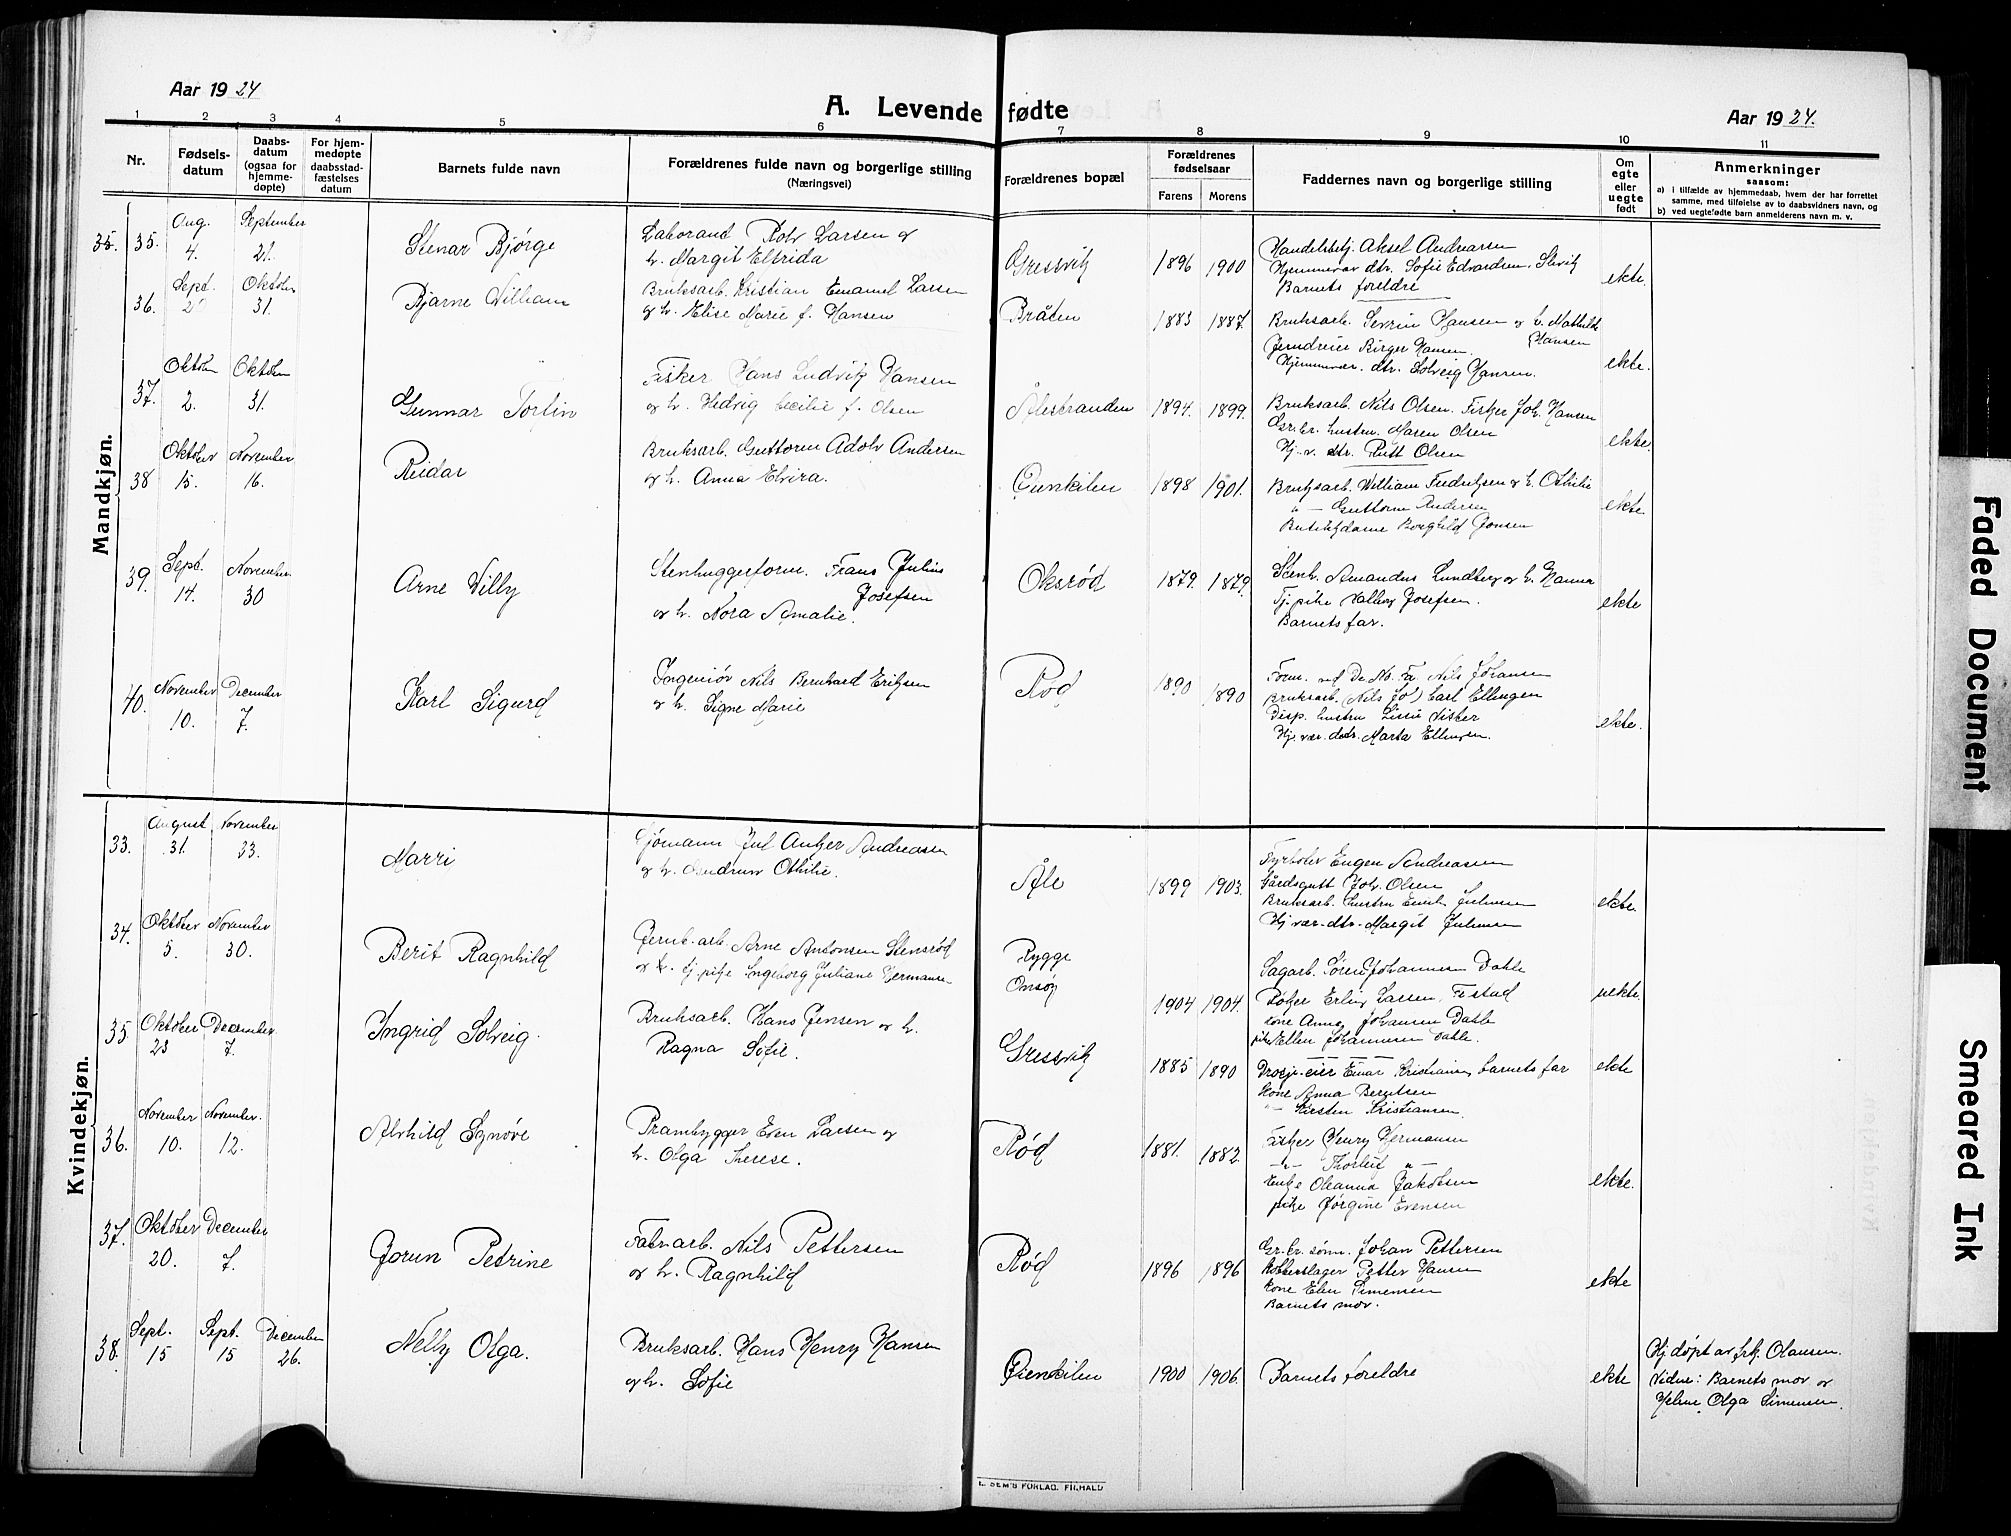 Aar 1924
A. Levende fødte
Aar 1924.
1 2 3 4 5 6 7 8 9 10 11
Nr.
Fødsels-
datum
Daabs-
datum
(ogsaa for
hjemme-
døpte)
For hjem-
medøpte
daabsstad-
fæstelses
datum
Barnets fulde navn
Forældrenes fulde navn og borgerlige stilling
(Næringsvei)
Forældrenes bopæl
Forældrenes
fødselsaar
Farens Morens
Faddernes navn og borgerlige stilling
Om
egte
eller
uegte
født
Anmerkninger
saasom:
a) i tilfælde av hjemmedaab, hvem der har forrettet
samme, med tilføielse av to daabsvidners navn, og
b) ved uegtefødte barn anmelderens navn m. v.
Mandkjøn.
35. 35.
Aug.
4.
September
21.
Stenar Bjørge
Laborant Rolv Larsen og
h. Margit Elfrida
Gressvik
1896 1900
Handelsbetj. Aksel Andreasen
Hjemmevær dtr. Sofie Edvardsen, Slevik
Barnets foreldre
ekte.
36.
Sept.
Oktober
31.
Bjarne William
Bruksarb. Kristian Emanuel Larsen
og h. Elise Marie f. Hansen
Bråten
1883 1887.
Bruksarb. Sevrin Hansen og h. Mathilde
Hansen
Birger Hansen.
Hjemmevær. dtr. Solveig Hansen.
ekte.
37.
Oktober
2.
Oktober
31.
Gunnar Torfin
Fisker Hans Ludvik Hansen
og h. Hedvig Cecilie f. Olsen
Ålestranden
1894. 1899.
Bruksarb. Nils Olsen. Fisker Joh. Hansen
Gr.br. hustru Maren Olsen
Hj. v. dtr. Rutt Olsen
ekte.
38
Oktober
15.
November
16.
Reidar
Bruksarb. Guttorm Adolv Andersen
og h. Anna Elvira.
Øienkilen
1898 1901.
Bruksarb. William Fredriksen og h. Othilie
" — Guttorm Andersen
Butikkdame Borghild Jonsen
ekte.
39.
Sept.
14.
November
30
Arne Willy
Stenhuggerform. Frans Julius
Josefsen
og h. Nora Amalie.
Oksrød
1879. 1879.
Stenh. Amandus Lundberg og h. Hanna
Tj. pike Valborg Josefsen.
Barnets far.
ekte
40.
November
10.
December
7.
Karl Sigurd
Ingeniør Nils Bernhard Eriksen
og h. Signe Marie
Rød
1890 1890
Form. ved De No. Fa. Nils Johansen
Bruksarb. (Nils Jo) Carl Ellingsen
Disp. hustru Lissie Visker
Hj. vær. datr. Marta Ellingsen.
ekte.
Kvindekjøn.
33.
August
31.
November
23.
Marri
Sjømann Jul Anker Andreasen
og h. Gudrun Othilie.
Åle
1899 1903.
Fyrbøter Eugen Andreasen
Gårdsgutt Joh. Olsen
Bruksarb. hustru Juliussen
Hj. vær. dtr. Margit Juliussen
ekte.
34.
Oktober
5.
November
30.
Berit Ragnhild
Jernb. arb. Arne Antonsen Stensrød
og tj. pike Ingeborg Juliane Hermansen
Rygge
Onsøy
1904 1904.
Sagarb. Søren Johannesen Dahle
Røker Erling Larsen, Festad
Kone Anna Johansen Dahle
pike Ellen Johannesen Dahle.
uekte.
35.
Oktober
23
December
7.
Ingrid Solveig.
Bruksarb. Hans Jensen og h.
Ragna Sofie.
Gressvik
1885 1890
Drosjeeier Einar Kristiansen, barnets far
Kone Anna Berntsen
" Kirsten Kristiansen.
ekte
36.
November
10.
November.
12.
Alvhild Synøve
Prambygger Even Larsen og
h. Olga Therese.
Rød
1881. 1882.
Fisker Henry Hermansen
— " — Thorleif — " —
Enke Oleanna Jakobsen
pike Jørgine Evensen
ekte.
37.
Oktober
20.
December
7.
Jorun Petrine
Fabr.arb. Nils Pettersen
og h. Ragnhild
Rød
1896 1896
Gr. br. sønn. Johan Pettersen
Kobberslager Petter Hansen
Kone Elen Simensen
Barnets mor.
ekte
38.
Sept.
15
Sept.
15
December
26.
Nelly Olga.
Bruksarb. Hans Henry Hansen
og h. Sofie
Øienkilen
1900 1906.
Barnets foreldre
ekte
Hj. døpt av frk. Olausen.
Vidne: Barnets mor og
Helene Olga Simensen.
L. SEM'S FORLAG. FR.HALD
Faded Document
Smeared Ink